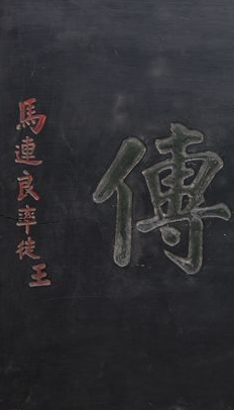 傳
馬連良率徒王